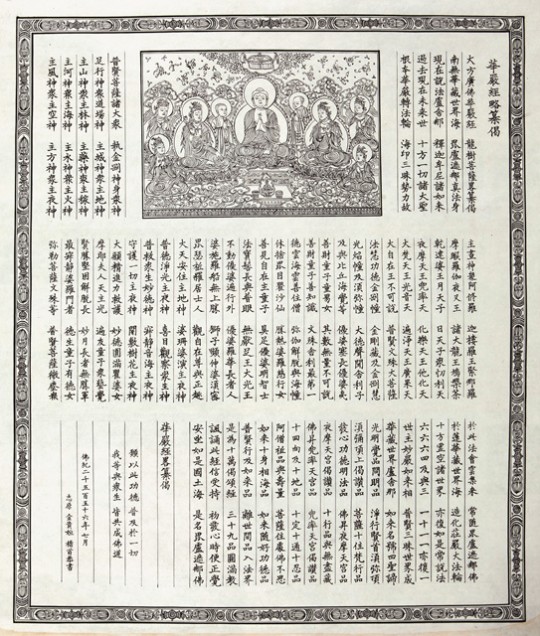 華嚴經略纂偈
大方廣佛華嚴經 龍樹菩薩畧纂偈
南無華藏世界海 毘盧遮那真法身
現在說法盧舍那 釋迦牟尼諸如來
過去現在未來世 十方一切諸大聖
根本華嚴轉法輪 海印三昧勢力故
普賢菩薩諸大衆 執金剛神身衆神
足行神衆道場神 主城神衆主地神
主山神衆主林神 主藥神衆主稼神
主河神衆主海神 主水神衆主火神
主風神衆主空神 主方神衆主夜神
主晝神衆阿修羅 迦樓羅王緊那羅
摩睺羅伽夜叉王 諸大龍王鳩槃茶
乾達婆王月天子 日天子衆忉利天
夜摩天王兜率天 化樂天王他化天
大梵天王光音天 遍淨天王廣果天
大自在王不可說 普賢文殊大菩薩
法慧功德金剛幢 金剛藏及金剛慧
光焰幢及須彌幢 大德聲聞舍利子
及與比丘海覺等 優婆塞長優婆夷
善財童子童男女 其數無量不可說
善財童子善知識 文殊舍利最第一
德雲海雲善住僧 彌伽解脫與海幢
休捨毘目瞿沙仙 勝熱婆羅慈行女
善見自在主童子 具足優婆明智士
法寶髻長與普眼 無厭足王大光王
不動優婆遍行外 優婆羅華長者人
婆施羅船無上勝 獅子頻伸婆須密
毘瑟祗羅居士人 觀自在尊與正趣
大天安住主地神 婆珊婆演主夜神
普德淨光主夜神 喜目觀察衆生神
普救衆生妙德神 寂靜音海主夜神
守護一切主夜神 開敷樹花主夜神
大願精進力救護 妙德圓滿瞿婆女
摩耶夫人天主光 遍友童子衆藝覺
賢勝堅固解脫長 妙月長者無勝軍
最寂靜婆羅門者 德生童子有德女
彌勒菩薩文殊等 普賢菩薩微塵衆
於此法會雲集來 常隨毘盧遮那佛
於蓮華藏世界海 造化莊嚴大法輪
十方虛空諸世界 亦復如是常說法
六六六四及與三 一十一一亦復一
世主妙嚴如來相 普賢三昧世界成
華藏世界盧舍那 如來名號四聖諦
光明覺品問明品 淨行賢首須彌頂
須彌頂上偈讚品 菩薩十住梵行品
發心功德明法品 佛昇夜摩天宮品
夜摩天宮偈讚品 十行品與無盡藏
佛昇兜率天宮品 兜率天宮偈讚品
十回向及十地品 十定十通十忍品
阿僧祇品與壽量 菩薩住處佛不思
如來十身相海品 如來隨好功德品
普賢行及如來品 離世間品入法界
是為十萬偈頌經 三十九品圓滿教
諷誦此經信受持 初發心時便正覺
安坐如是國土海 是名毘盧遮那佛
華嚴經畧纂偈
願以此功德 普及於一切
我等與衆生 皆共成佛道
佛紀二千五百五十六年 七月